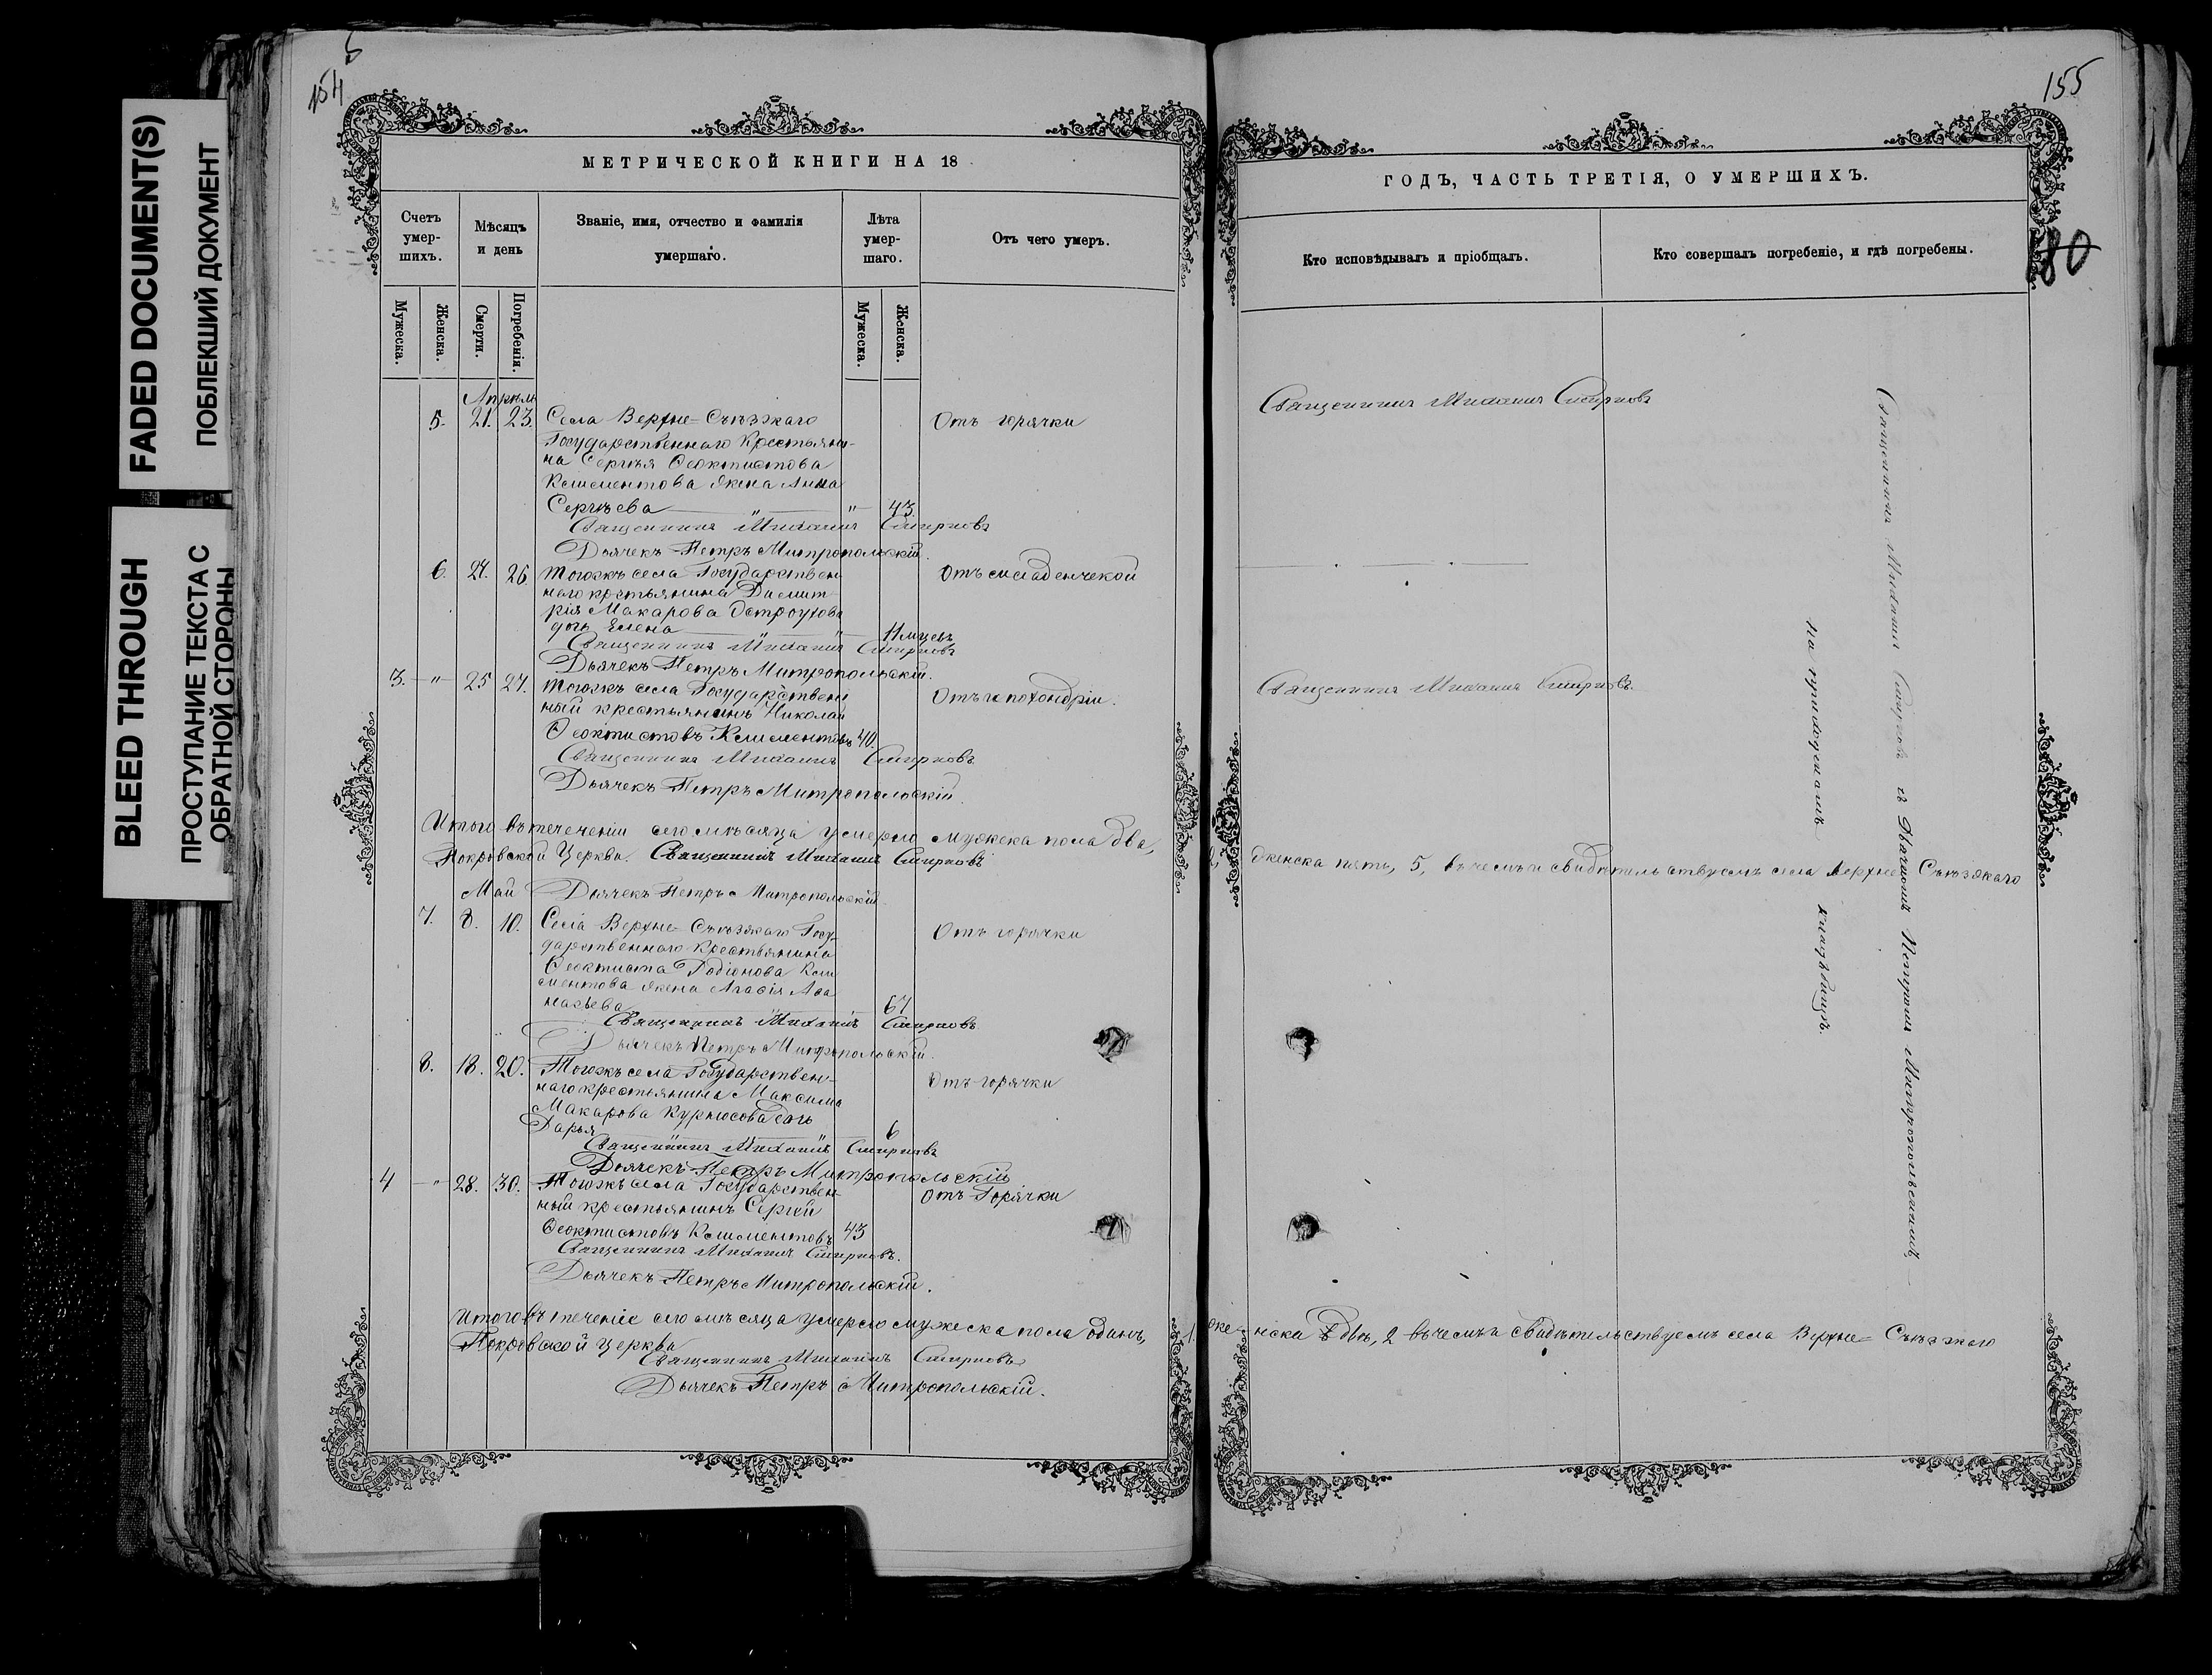 FADED DOCUMENT(S)
ПОБЛЕКШИЙ ДОКУМЕНТ
BLEED THROUGH
ПРОСТУПАНИЕ ТЕКСТА С
ОБРАТНОЙ СТОРОНЫ
154
МЕТРИЧЕСКОЙ КНИГИ НА 18
Счетъ умер-шихъ.
Мѣсяцъ и день
Званіе, имя, отчество и фамилія умершаго.
Лѣта умер-шаго.
Отъ чего умеръ.
Мужеска.
Женска.
Смерти.
Погребенія.
Мужеска.
Женска.
Апрѣль
5. 21. 23. Села Верхне-Съѣзжаго Отъ горячки
Государственнаго Крестьяни-
на Сергѣя Ѳеоктистова
Клементова жена Анна
Сергѣева " " 43.
Священникъ Михаилъ Смирновъ
Дьячекъ Петръ Митропольскій.
6. 24. 26 Тогожъ села Государствен Отъ младенчекой
наго крстьянина Димит-
рія Макарова Остроухова
дочь Елена " " 11 мцевъ
Священникъ Михаилъ Смирновъ
Дьячекъ Петръ Митропольскій.
3. " 25 27. Тогожъ села Государствен Отъ ипохондріи.
ный крестьянинъ Николай
Ѳеоктистовъ Клементовъ 40.
Священникъ Михаилъ Смирновъ
Дьячекъ Петръ Митропольскій
Итого въ теченіи сего мѣсяца умерло мужеска пола два,
Покровской Церкви. Священникъ Михаилъ Смирновъ
Май Дьячекъ Петръ Митропольскій
7. 8. 10. Села Верхне-Съѣзжаго Госу- Отъ горячки
дарственнаго Крестьянина
Ѳеоктиста Родіонова Кле
ментова жена Агафія Аѳа
насьева 67
Священникъ Михаилъ Смирновъ
Дьячекъ Петръ Митропольскій.
8. 18. 20. Тогожъ села Государствен- Отъ горячки
наго крестьянина Максима
Макарова Курносова дочь
Дарья " " 6
Священникъ Михаилъ Смирновъ
Дьячекъ Петръ Митропольскій
4 " 28. 30. Тогожъ села Государствен- Отъ Горячки
ный крестьянинъ Сергій
Ѳеоктистовъ Клементовъ 43
Священникъ Михаилъ Смирновъ.
Дьячекъ Петръ Митропольскій.
Итого въ теченіе сего мѣсяца умерло мужеска пола одинъ,
Покровской Церкви
Священникъ Михаилъ Смирновъ
Дьячекъ Петръ Митропольскій.
155
ГОДЪ, ЧАСТЬ ТРЕТІЯ, О УМЕРШИХЪ.
Кто исповѣдывалъ и пріобщалъ.
Кто совершалъ погребеніе, и гдѣ погребены.
180
Священникъ Михаилъ Смирновъ
Священникъ Михаилъ Смирновъ.
Священникъ Михаилъ Смирновъ съ Дьячкомъ Петромъ Митропольскимъ
на приходскомъ кладбищѣ
2, женска пять, 5, въ чемъ и свидѣтельствуемъ села Верхне Съѣзжаго
1. же- нска двѣ, 2 въ чемъ и свидѣтельствуемъ села Верхне- Съѣзжаго